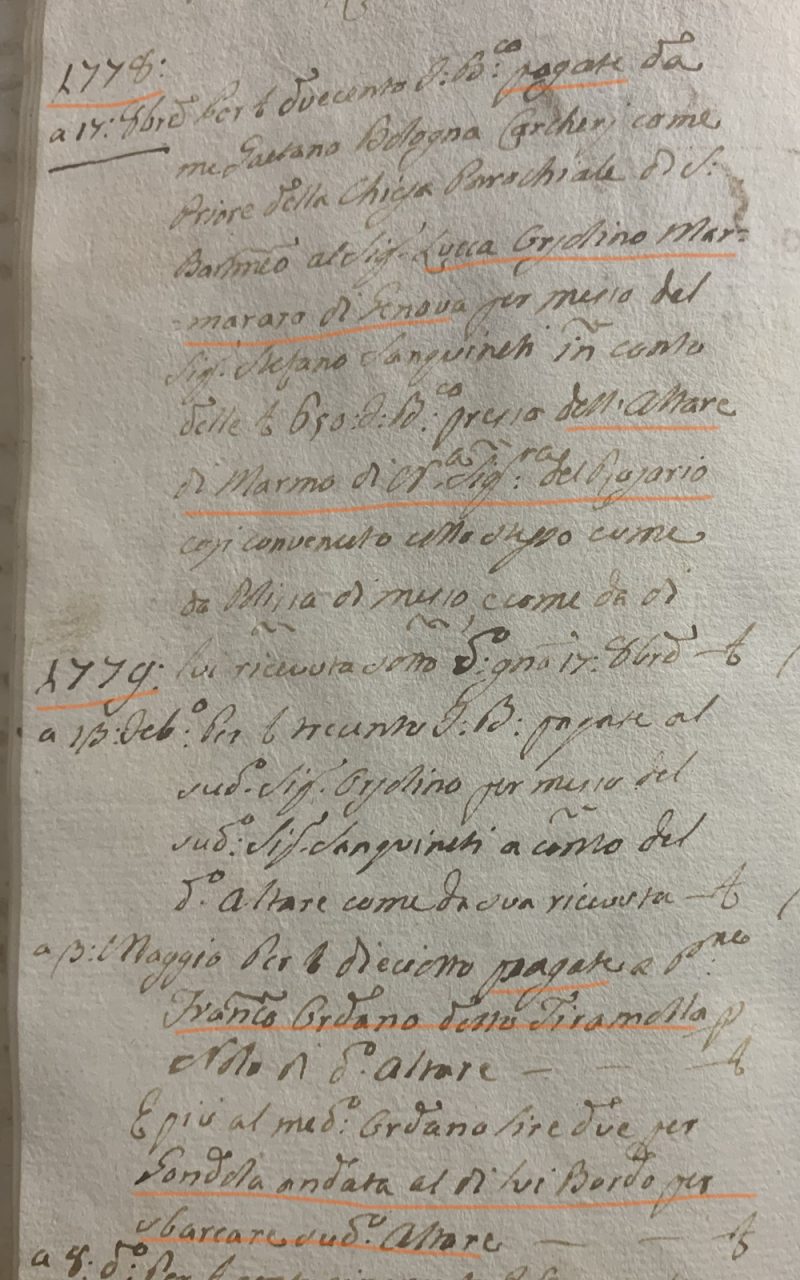 1778:
a 17: 8brē Per £ duecento F: B:co pagate da
me Gaetano Bologna Carcherj come
Priore della Chiesa Parochiale di S:
Bartmēo al Sig.r Lucca Orsolino Mar=
=mararo di Genova per messo del
Sig.r Stefano Sanguineti in conto
delle £ 650: F: B:co presso dell'Altare
di Marmo di N.a Sig.ra del Rosario
così convenuto collo stesso come
da Polissa di messo, e come da di
1779: lui ricevuta sotto d:o gno 17: 8brē — £
a 13: Feb:o Per £ trecento F: B: pagate al
sud.o Sig.r Orsolino per messo del
sud:o Sig.r Sanguineti a conto del
d.o Altare come da sua ricevuta — £
a 3: Maggio Per £ dieciotto pagate a P:ne
Franco Ordano detto Tiramolla p
Nolo di d.o Altare — — — £
E più al med:o Ordano lire due per
Gondola andata al di lui Bordo per
sbarcare sud.o Altare — — £
a 8: d:o Per £